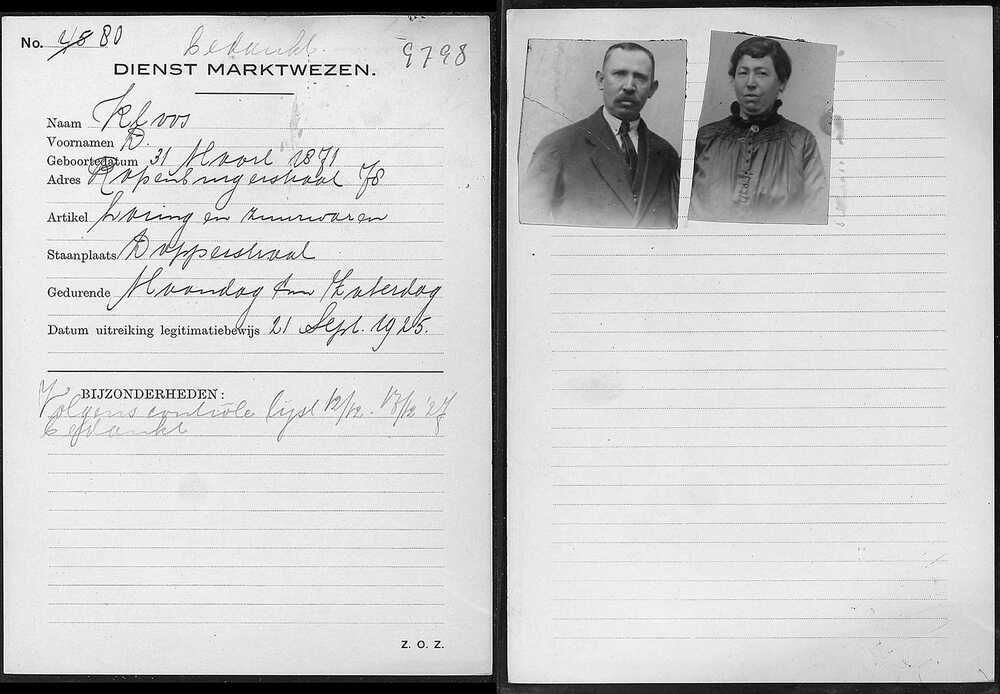 No. 45 80
bedankt.
9798
DIENST MARKTWEZEN.
Naam Kloos
Voornamen D.
Geboortedatum 31 Maart 1871
Adres Rapenburgerstraat 78
Artikel Haring en zuurwaren
Staanplaats Dapperstraat
Gedurende Maandag t/m Zaterdag
Datum uitreiking legitimatiebewijs 21 Sept. 1925.
BIJZONDERHEDEN:
Volgens controle lijst 12/12 - 17/12 '27
bedankt
Z. O. Z.